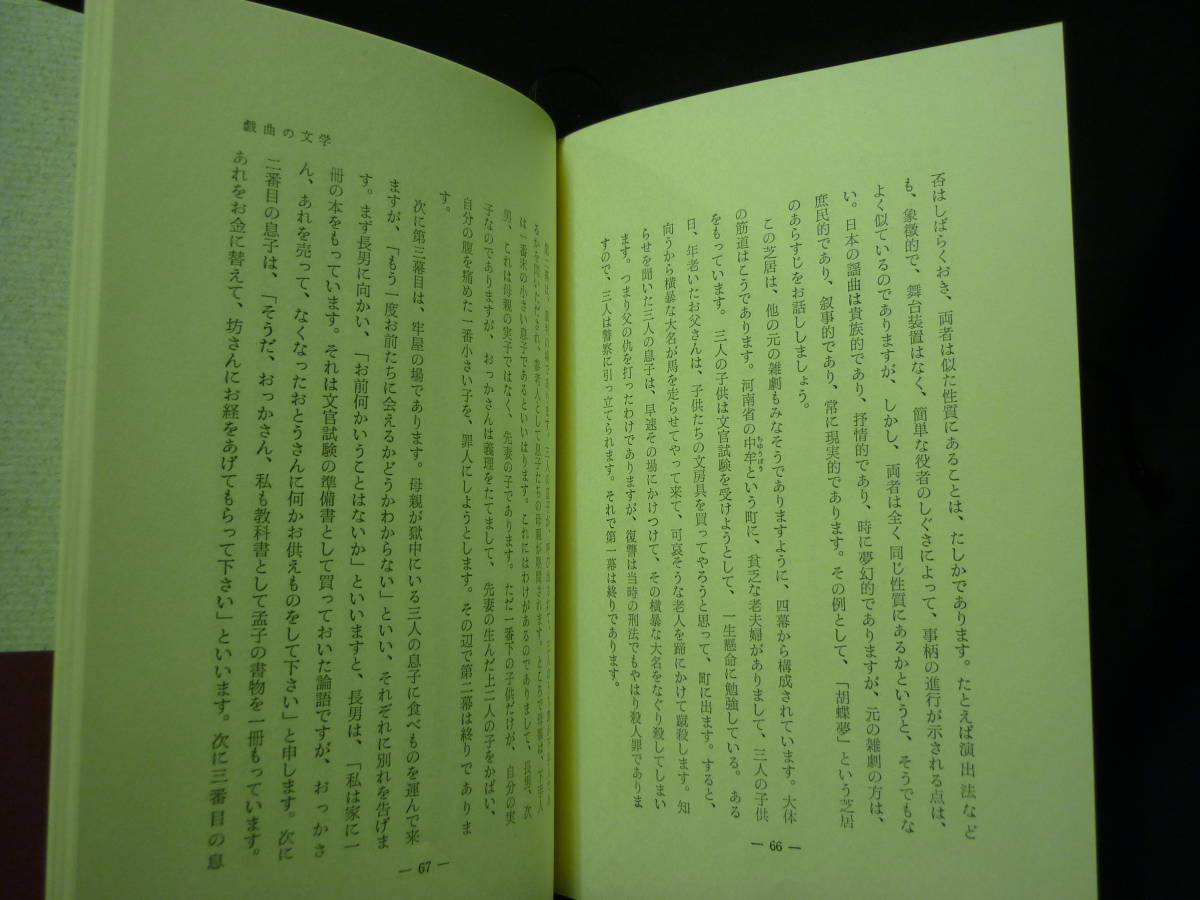 否はしばらくおき、両者は似た性質にあることは、たしかであります。たとえば演出法など
も、象徴的で、舞台装置はなく、簡単な役者のしぐさによって、事柄の進行が示される点は、
よく似ているのでありますが、しかし、両者は全く同じ性質にあるかというと、そうでもな
い。日本の謡曲は貴族的であり、抒情的であり、時に夢幻的でありますが、元の雑劇の方は、
庶民的であり、叙事的であり、常に現実的であります。その例として、「胡蝶夢」という芝居
のあらすじをお話ししましょう。
この芝居は、他の元の雑劇もみなそうでありますように、四幕から構成されています。大体
の筋道はこうであります。河南省の中牟という町に、貧乏な老夫婦がありまして、三人の子供
ちゆうぼう
をもっています。三人の子供は文官試験を受けようとして、一生懸命に勉強している。ある
日、年老いたお父さんは、子供たちの文房具を買ってやろうと思って、町に出ます。すると、
向うから横暴な大名が馬を走らせてやって来て、可哀そうな老人を蹄にかけて蹴殺します。知
らせを聞いた三人の息子は、早速その場にかけつけて、その横暴な大名をなぐり殺してしまい
ます。つまり父の仇を打ったわけでありますが、復讐は当時の刑法でもやはり殺人罪でありま
すので、三人は警察に引っ立てられます。それで第一幕は終りであります。
— 66 —
戯曲の文学
は一番末の小さい息子であるといいはります。これにはわけがあるのでありまして、長男、次
男、これは母親の実子ではなく、先妻の子であります。ただ一番下の子供だけが、自分の実
子なのでありますが、おっかさんは義理をたてまして、先妻の生んだ上二人の子をかばい、
自分の腹を痛めた一番小さい子を、罪人にしようとします。その辺で第二幕は終りでありま
す。
次に第三幕目は、牢屋の場であります。母親が獄中にいる三人の息子に食べものを運んで来
ますが、「もう一度お前たちに会えるかどうかわからない」といい、それぞれに別れを告げま
す。まず長男に向かい、「お前何かいうことはないか」といいますと、長男は、「私は家に一
冊の本をもっています。それは文官試験の準備書として買っておいた論語ですが、おっかさ
ん、あれを売って、なくなったおとうさんに何かお供えものをして下さい」と申します。次に
二番目の息子は、「そうだ、おっかさん、私も教科書として孟子の書物を一冊もっています。
あれをお金に替えて、坊さんにお経をあげてもらって下さい」といいます。次に三番目の息
— 67 —